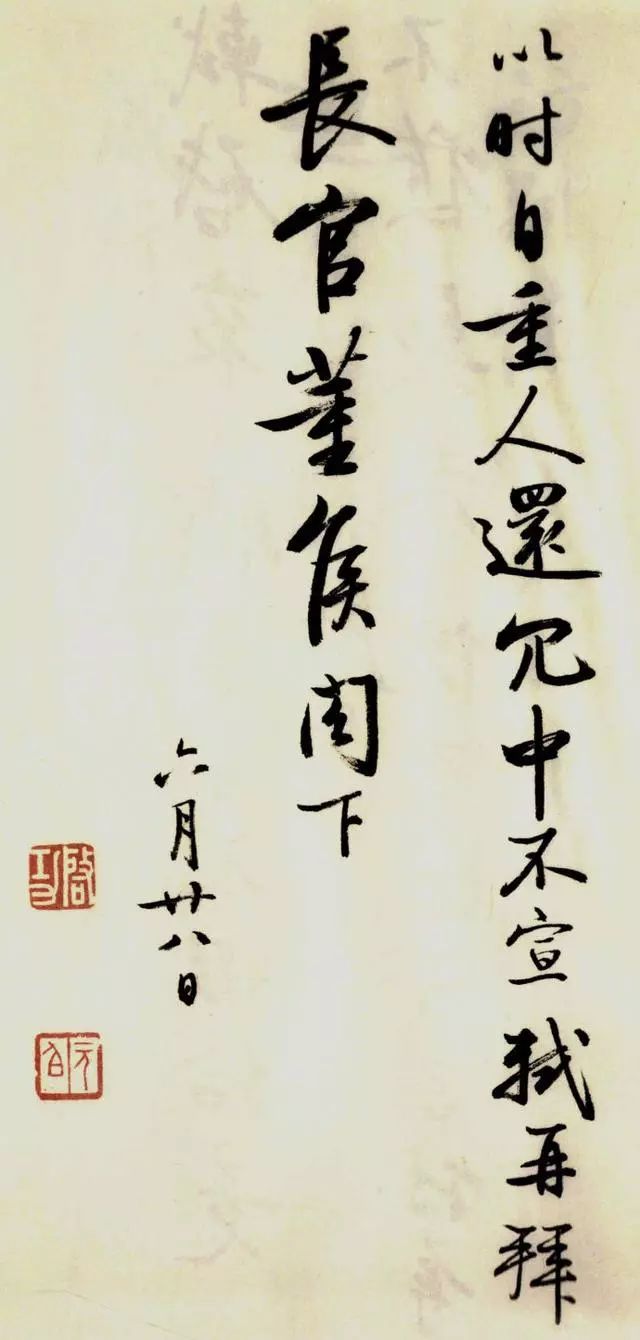 以时自重人還冗中不宣軾再拜
長官董侯閣下
六月廿八日
啟功
元白